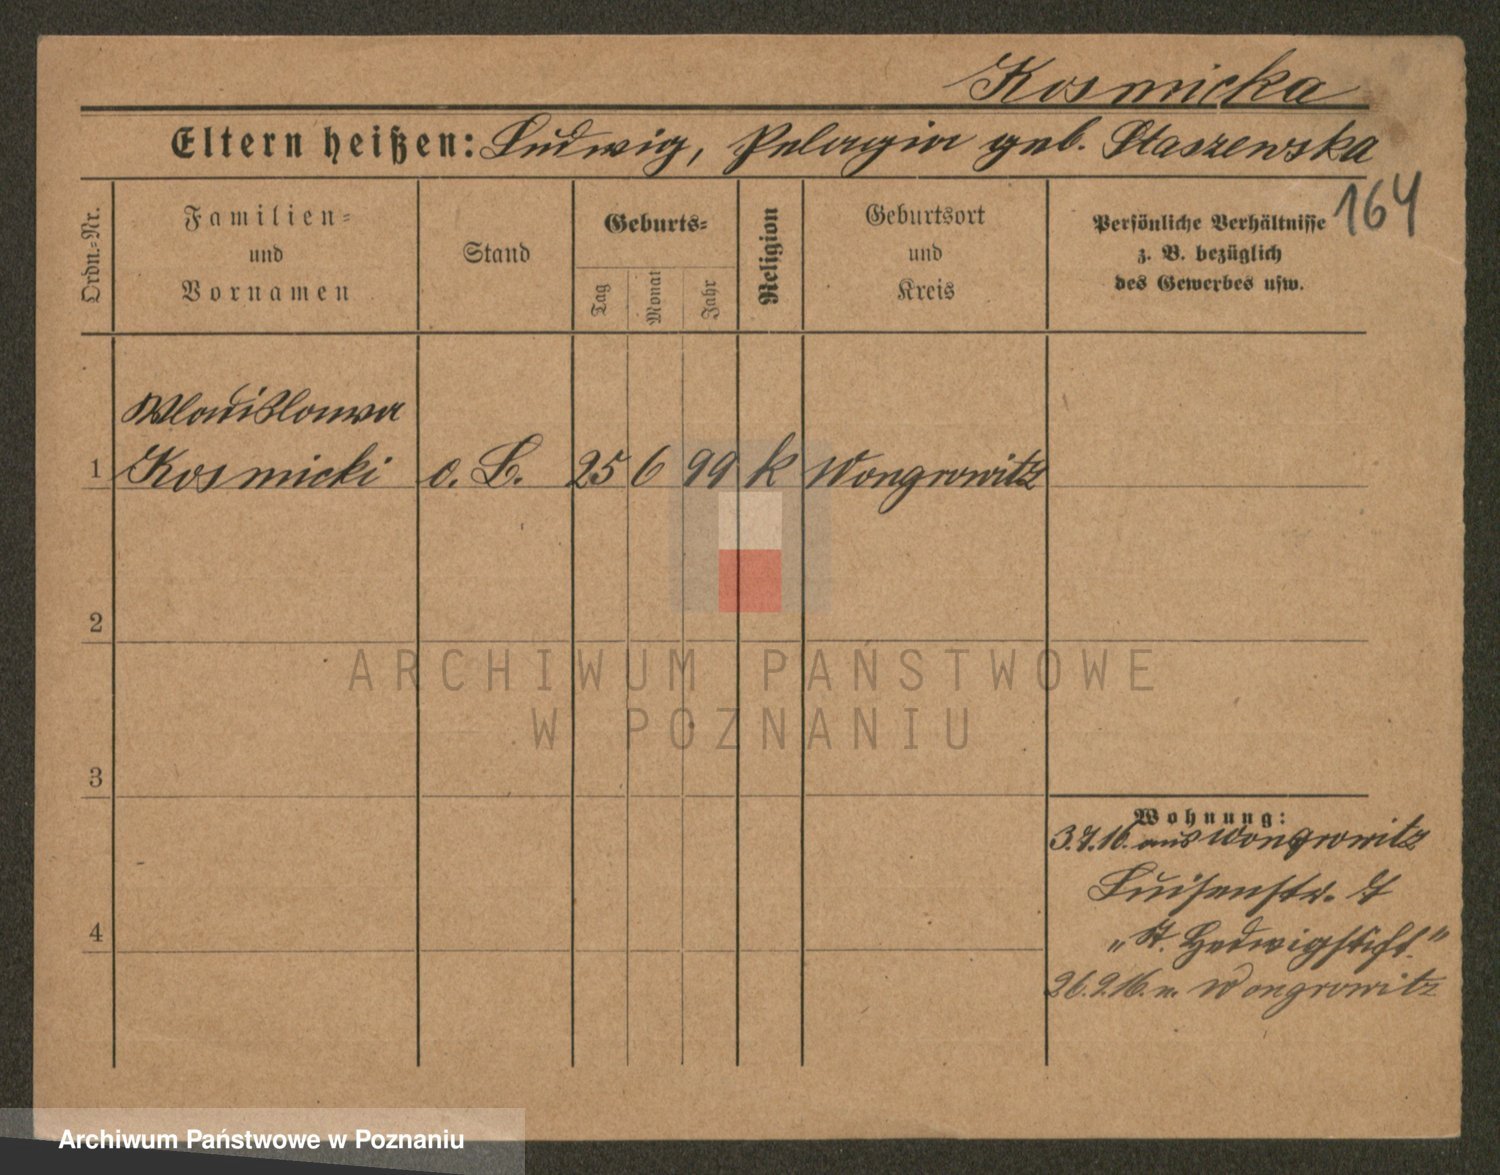 Kosmicka
Eltern heißen: Ludwig, Pelagia geb. Staszewska
164
Ordn.-Nr.
Familien-
und
Vornamen
Stand
Geburts-
Tag
Monat
Jahr
Religion
Geburtsort
und
Kreis
Persönliche Verhältnisse
z. B. bezüglich
des Gewerbes usw.
Wladislawa
1 Kosmicki o. B. 25 6 99 k Wongrowitz
2
3
4
Wohnung:
3.7.16. aus Wongrowitz
Luisenstr. 7
„St. Hedwigstift."
26.2.16. n. Wongrowitz
ARCHIWUM PAŃSTWOWE
W POZNANIU
Archiwum Państwowe w Poznaniu